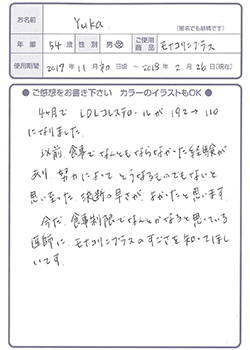 お名前 Yuka (匿名でも結構です)
年齢 54歳 性別 男・女 ご使用商品 モナコリンプラス
使用期間 2017年11月初日頃 〜 2018年2月26日(現在)
ご感想をお書き下さい カラーのイラストもOK
4ヶ月でLDLコレステロールが192→110
になりました。
以前、食事でなんともならなかった経験が
あり、努力によって、どうなるものでもないと
思い至った決断の早さがよかったと思います。
今だ、食事制限でなんとかなると思っている
医師に、モナコリンプラスのすごさを知ってほし
いです。